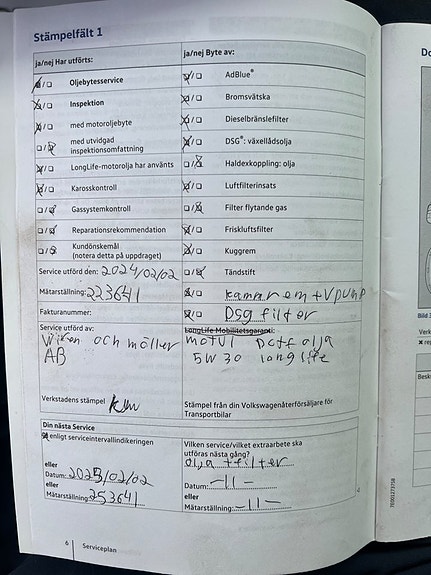 Stämpelfält 1
ja/nej Har utförts:
ja/nej Byte av:
Oljebytesservice
AdBlue®
Inspektion
Bromsvätska
med motoroljebyte
Dieselbränslefilter
med utvidgad
inspektionsomfattning
DSG®: växellådsolja
LongLife-motorolja har använts
Haldexkoppling: olja
Karosskontroll
Luftfilterinsats
Gassystemkontroll
Filter flytande gas
Reparationsrekommendation
Friskluftsfilter
Kundönskemål
(notera detta på uppdraget)
Kuggrem
Service utförd den: 2024/02/02
Tändstift
Mätarställning: 223641
kamrem + Vpump
Fakturanummer:
Dsg filter
Service utförd av:
LongLife Mobilitetsgaranti:
och möller
AB
motul
olja
5W30 longlife
Verkstadens stämpel
Stämpel från din Volkswagenåterförsäljare för
Transportbilar
Din nästa Service
enligt serviceintervallindikeringen
Vilken service/vilket extraarbete ska
utföras nästa gång?
olja + filter
eller
Datum: 2025/02/02
Datum: -11-
eller
eller
Mätarställning: 253641
Mätarställning: -11-
6
Serviceplan